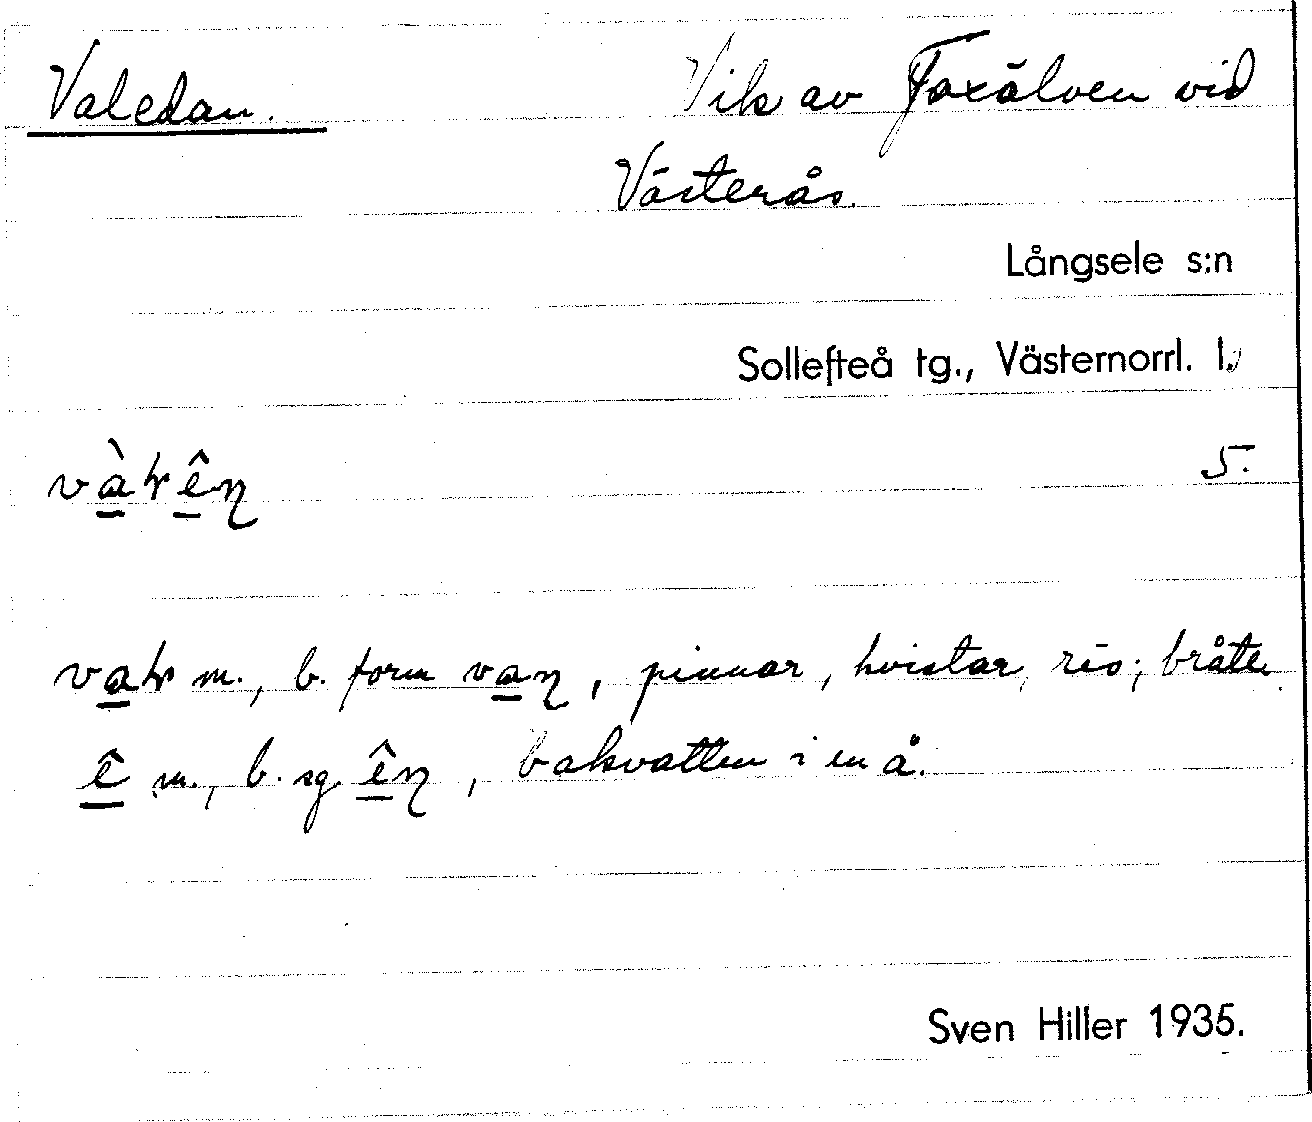 Valedan. Vik av Faxälven vid
Västerås.
Långsele s:n
Sollefteå tg., Västernorrl. l.
5.
m., b. form , pinnar, kvistar, ris; bråte.
ê m., b. sg. , bakvatten i en å.
Sven Hiller 1935.